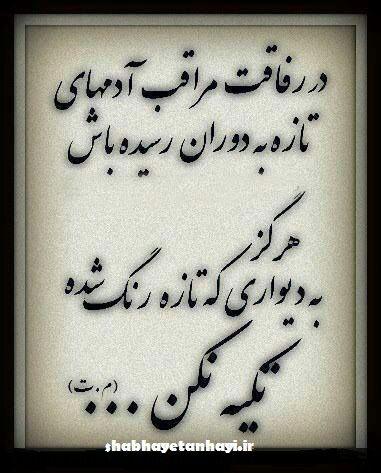 در رفاقت مراقب آدمهای
تازه به دوران رسیده باش
هرگز
به دیواری که تازه رنگ شده
تکیه نکن ... (م.ت)
shabhayetanhayi.ir